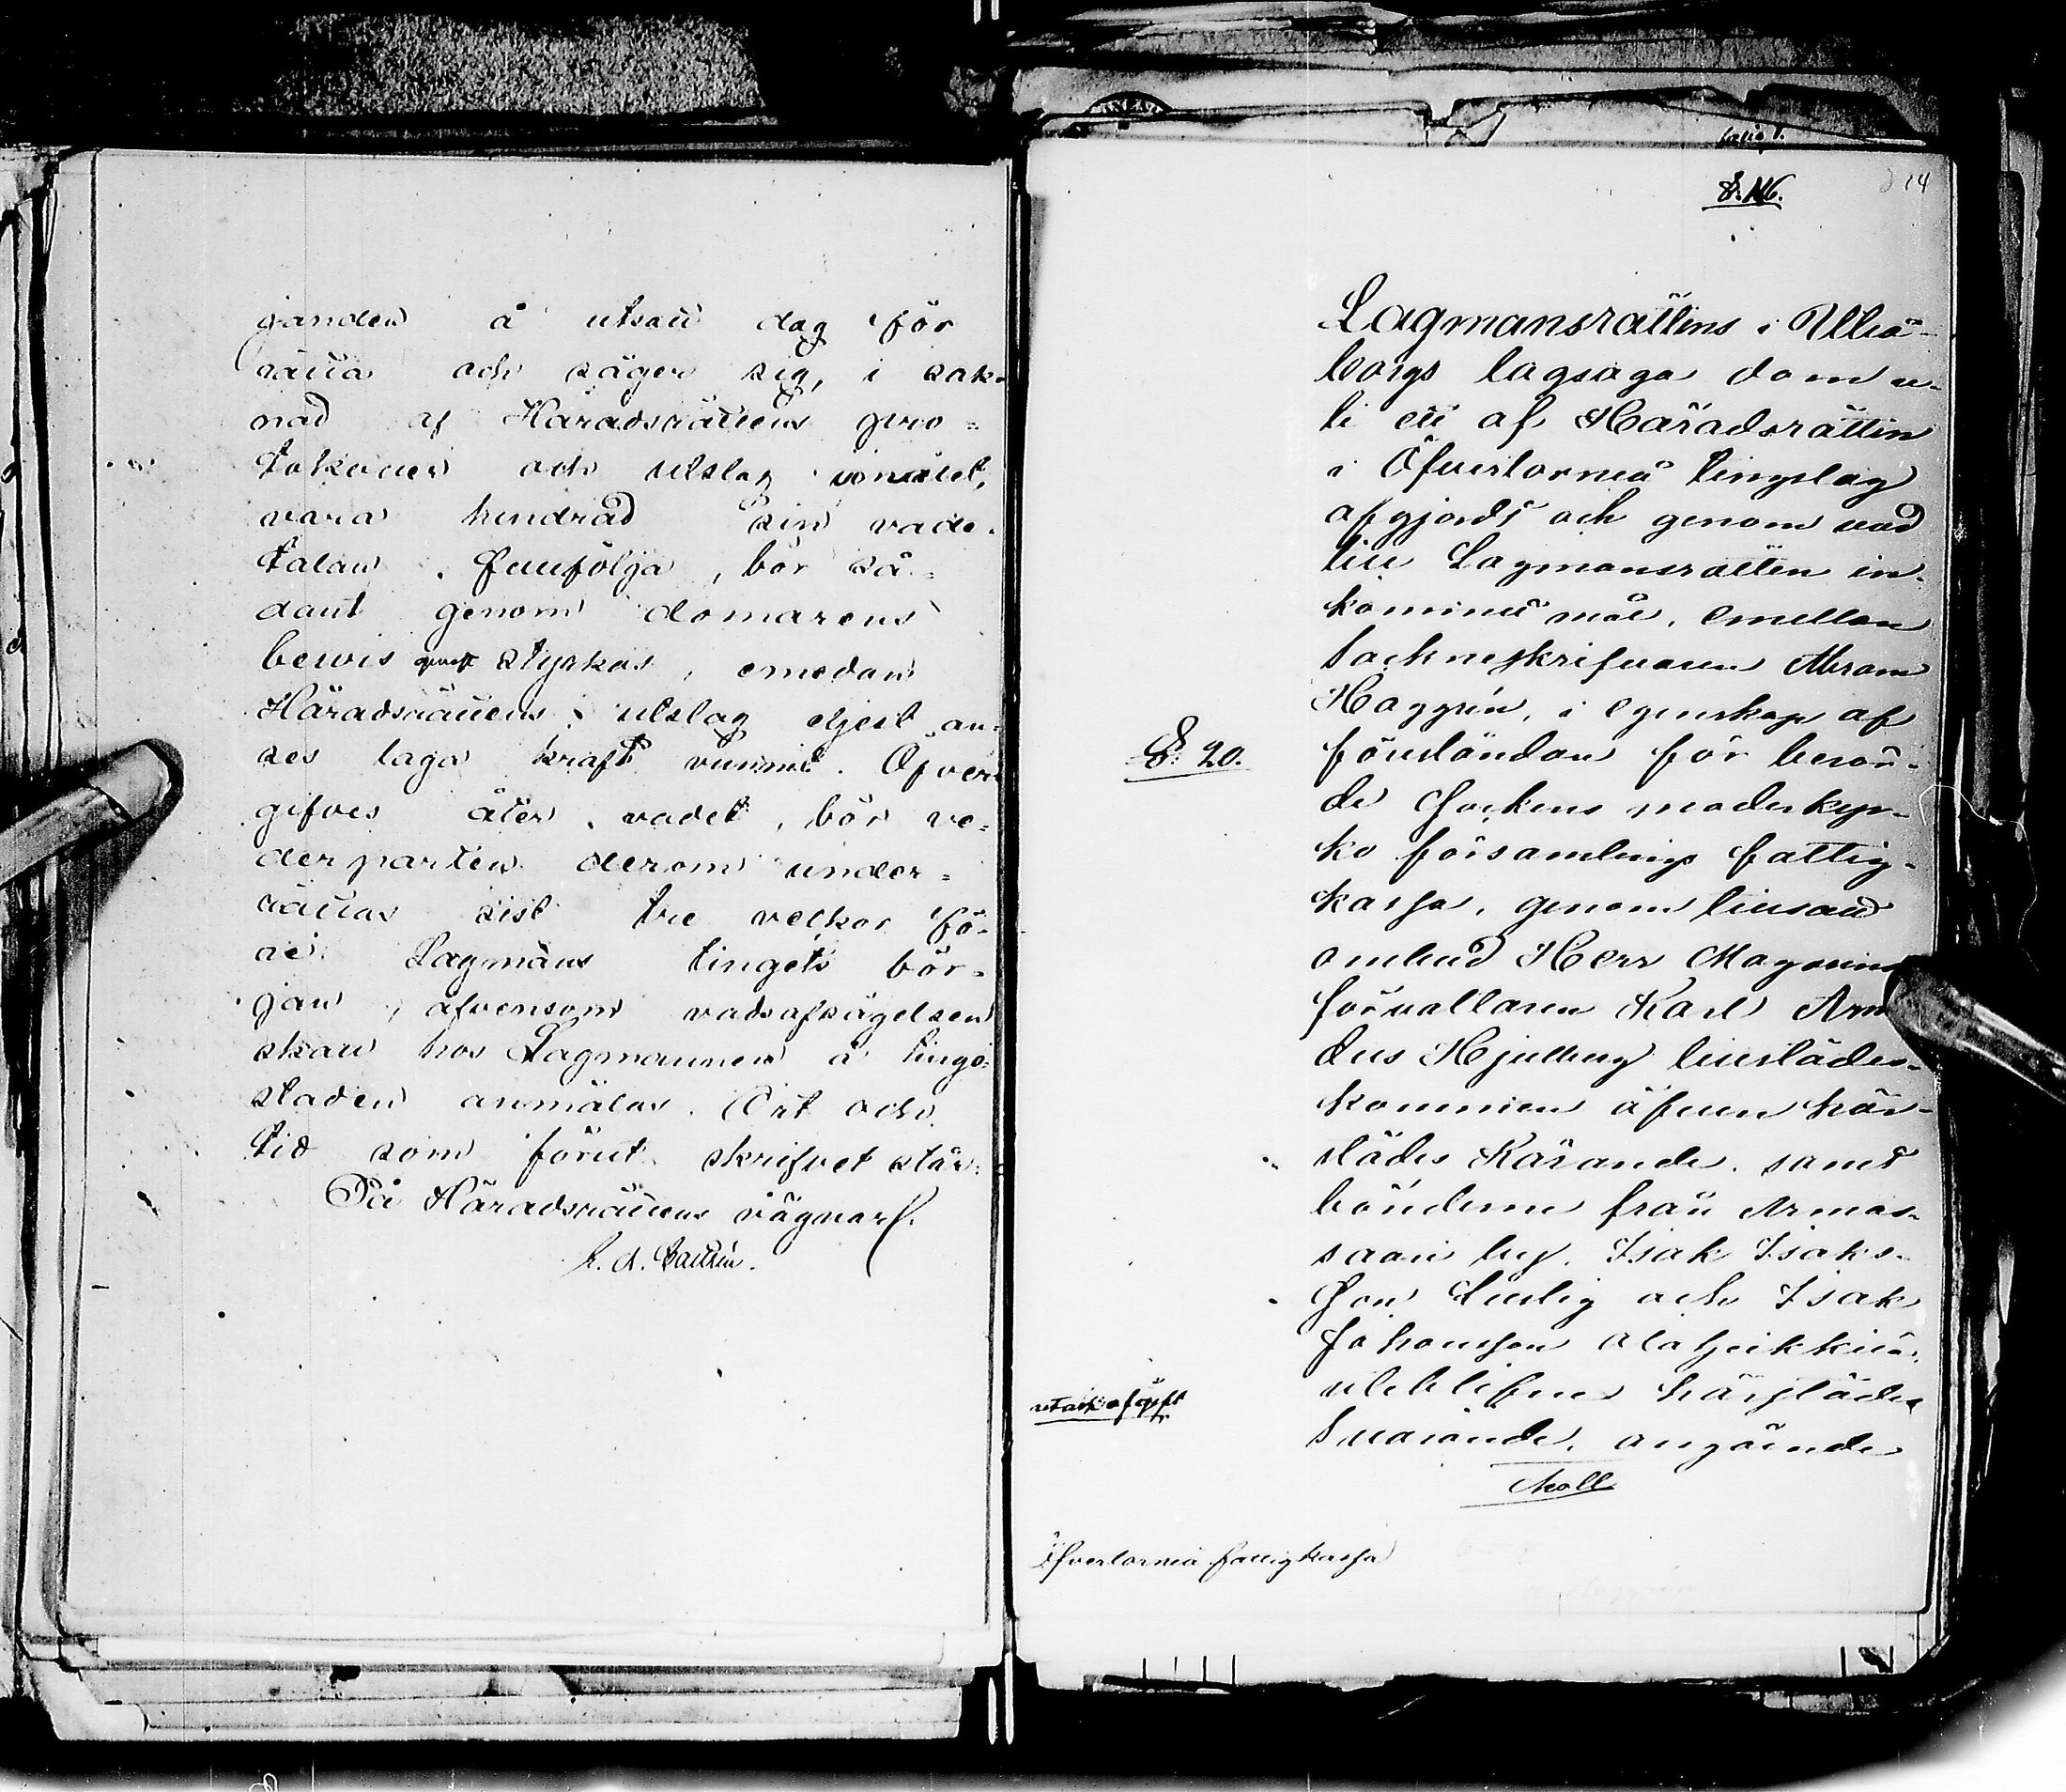 janden å utsatt dag för
rätta och säger sig, i sak-
nad af Häradsrättens pro=
tokoller och utslag i målet,
vara hindrad sin vade-
talan fullfölja, bör så=
dant genom domarens
bewis styrkas, emedan
Häradsrättens utslag eljest an-
ses laga kraft vunnit. Öfver
gifves åter vadet, bör ve=
derparten derom under=
rättas sist tre veckor fö-
re Lagmans tingets bör=
jan, äfvensom vadsafsägelsen
skall hos Lagmannen å tings
staden anmälas. Ort och
tid som förut skrifvet står.
På Häradsrättens vägnar
fatt:
§. 116.
214
Lagmansrättens i Uleå-
borgs lagsaga dom u-
ti ett af Häradsrätten
i Öfvertorneå tingslag
afgjordt och genom vad
till Lagmansrätten in-
kommet mål, emellan
Sockneskrifvaren Abram
Häggrén, i egenskap af
föreståndare för berör-
de Sockens moderkyr-
ko församlings fattig-
kassa, genom tillsatt
ombud Herr Magasins
förvaltaren Karl
Hjulberg tillstädes-
kommen äfven här-
städes Kärande, samt
bönderne från Armas-
saari by, Isak Isaks-
son och Isak
Johansson Alaheikkilä,
uteblifne härstädes
Svarande, angående
§. 20.
Öfvertorneå fattigkassa